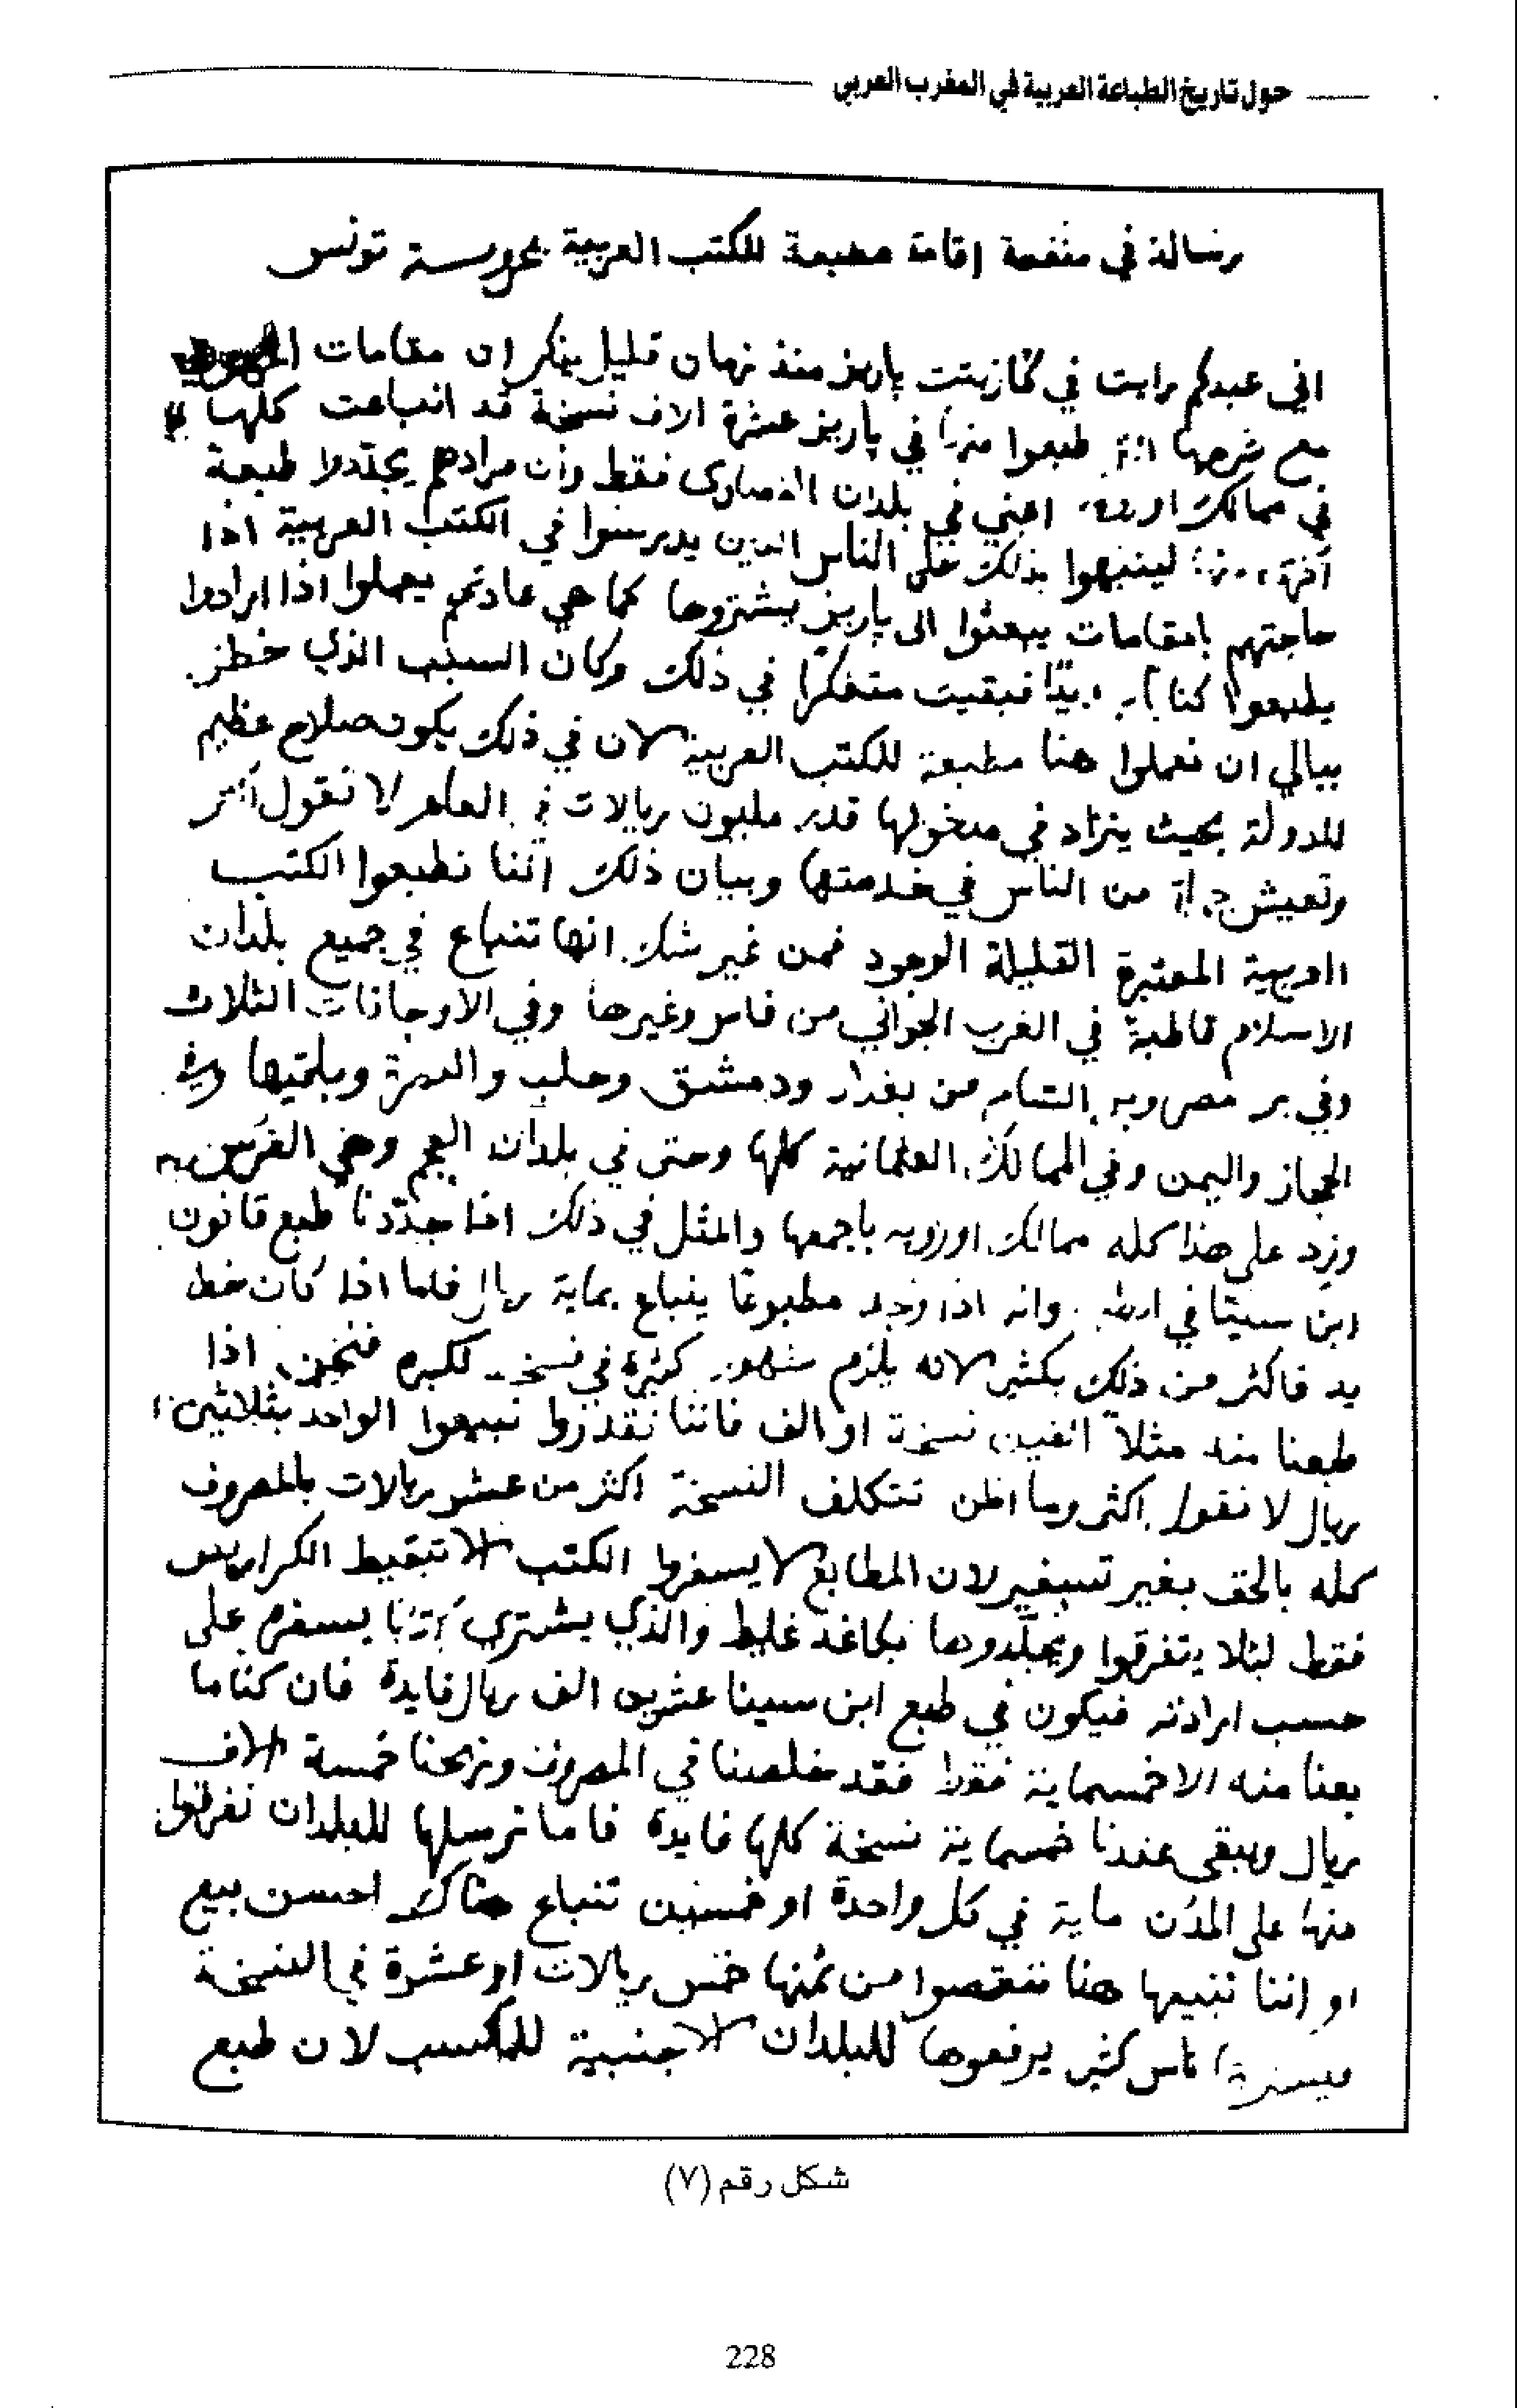 حول تاريخ الطباعة العربية في المغرب العربي
رسالة في منفعة اقامة مطبعة للكتب العربية بمحروسة تونس
اني عبدكم رايت في كازيتت پاريز منذ زمان قليل يذكر ان مقامات الحريري
مع شرحها طبعوا منها في پاريز عشرة الاف نسخة قد انباعت كلها
في ممالك اعني في بلدان النصارى فقط وان مرادهم يجتدوا طبعة
لينبهوا بذلك على الناس الذين يدرسوا في الكتب العربية اذا
حاجتهم بامقامات يبعثوا الى پاريز يشتروها كما هي عادتهم يعملوا اذا ارادوا
يطبعوا فبقيت متفكرا في ذلك وكان السبب الذي خطر
ببالي ان نعملوا هنا مطبعة للكتب العربية لان في ذلك يكون صلاح عظيم
للدولة بحيث يزاد في مدخولها قدر مليون ريالات في العام لا نقول اكثر
وتعيش جملة من الناس في خدمتها وبيان ذلك اننا نطبعوا الكتب
العربية المعتبرة القليلة الوجود فمن غير شك انها تنباع في جميع بلدان
الاسلام قاطبة في الغرب الجواني من فاس وغيرها وفي الاوجانات الثلاث
وفي بر مصر وبر الشام من بغداد ودمشق وحلب والبصرة وملحقيها وفي
الحجاز واليمن وفي الممالك العثمانية كلها وحتى في بلدان العجم وهي الفرس
وزد على هذا كله ممالك اوروپه باجمعها والمثل في ذلك اذا جددنا طبع قانون
ابن سينا في الطب وانه اذا وجد مطبوعا ينباع بماية ريال فلما اذا كان خط
يد فاكثر من ذلك بكثير لانه يلزم شهور كثيرة في نسخه لكبره فنحن اذا
طبعنا منه مثلا الفين نسخة او الف فاننا نقدروا نبيعوا الواحد بثلاثين
ريال لا نقول اكثر وما اظن تتكلف النسخة اكثر من عشر ريالات بالمصروف
كله بالحق بغير تسفير لان المطابع لا يسفروا الكتب الا تبقيط الكراريس
فقط لئلا يتفرقوا ويجلدوها بكاغد غليظ والذي يشتري كتابا يسفره على
حسب ارادته فيكون في طبع ابن سينا عشرين الف ريال فايدة فان كنا ما
بعنا منه الا خمسماية فقط فقد خلصنا في المصروف وربحنا خمسة الاف
ريال ويبقى عندنا خمسماية نسخة كلها فايدة فاما نرسلها للبلدان نفرقوا
منها على المدن ماية في كل واحدة او خمسين تنباع هناك احسن بيع
او اننا نبيعها هنا ننقصوا من ثمنها خمس ريالات او عشرة في النسخة
ناس كثير يرفعوها للبلدان الاجنبية للمكسب لان طبع
شكل رقم (٧)
228